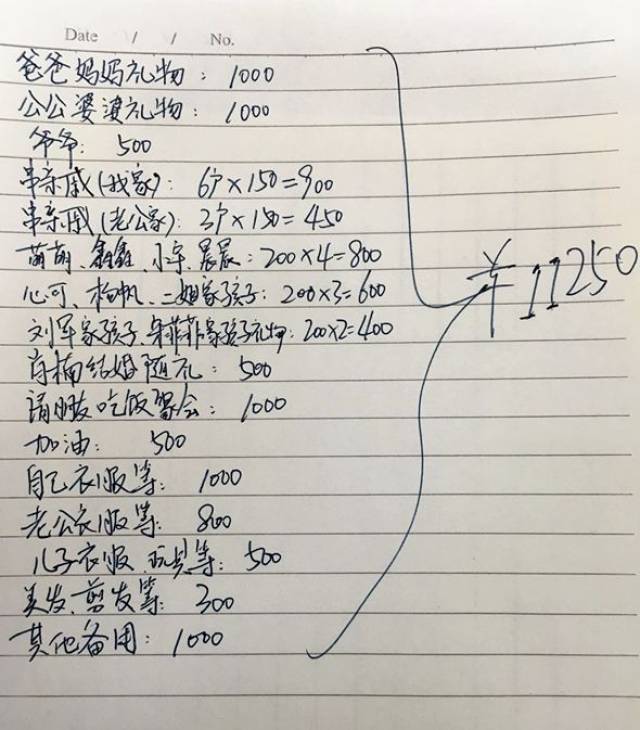 Date / / No.
爸爸妈妈礼物：1000
公公婆婆礼物：1000
爷爷：500
串亲戚(我家)：6户×150=900
串亲戚(老公家)：3户×150=450
萌萌、鑫鑫、小宇、晨晨：200×4=800
心可、杨帆、二姐家孩子：200×3=600
刘军家孩子、朱菲菲家孩子礼物：200×2=400
肖楠结婚随礼：500
请朋友吃饭聚会：1000
加油：500
自己衣服等：1000
老公衣服等：800
儿子衣服、玩具等：500
美发、剪发等：300
其他备用：1000
¥11250